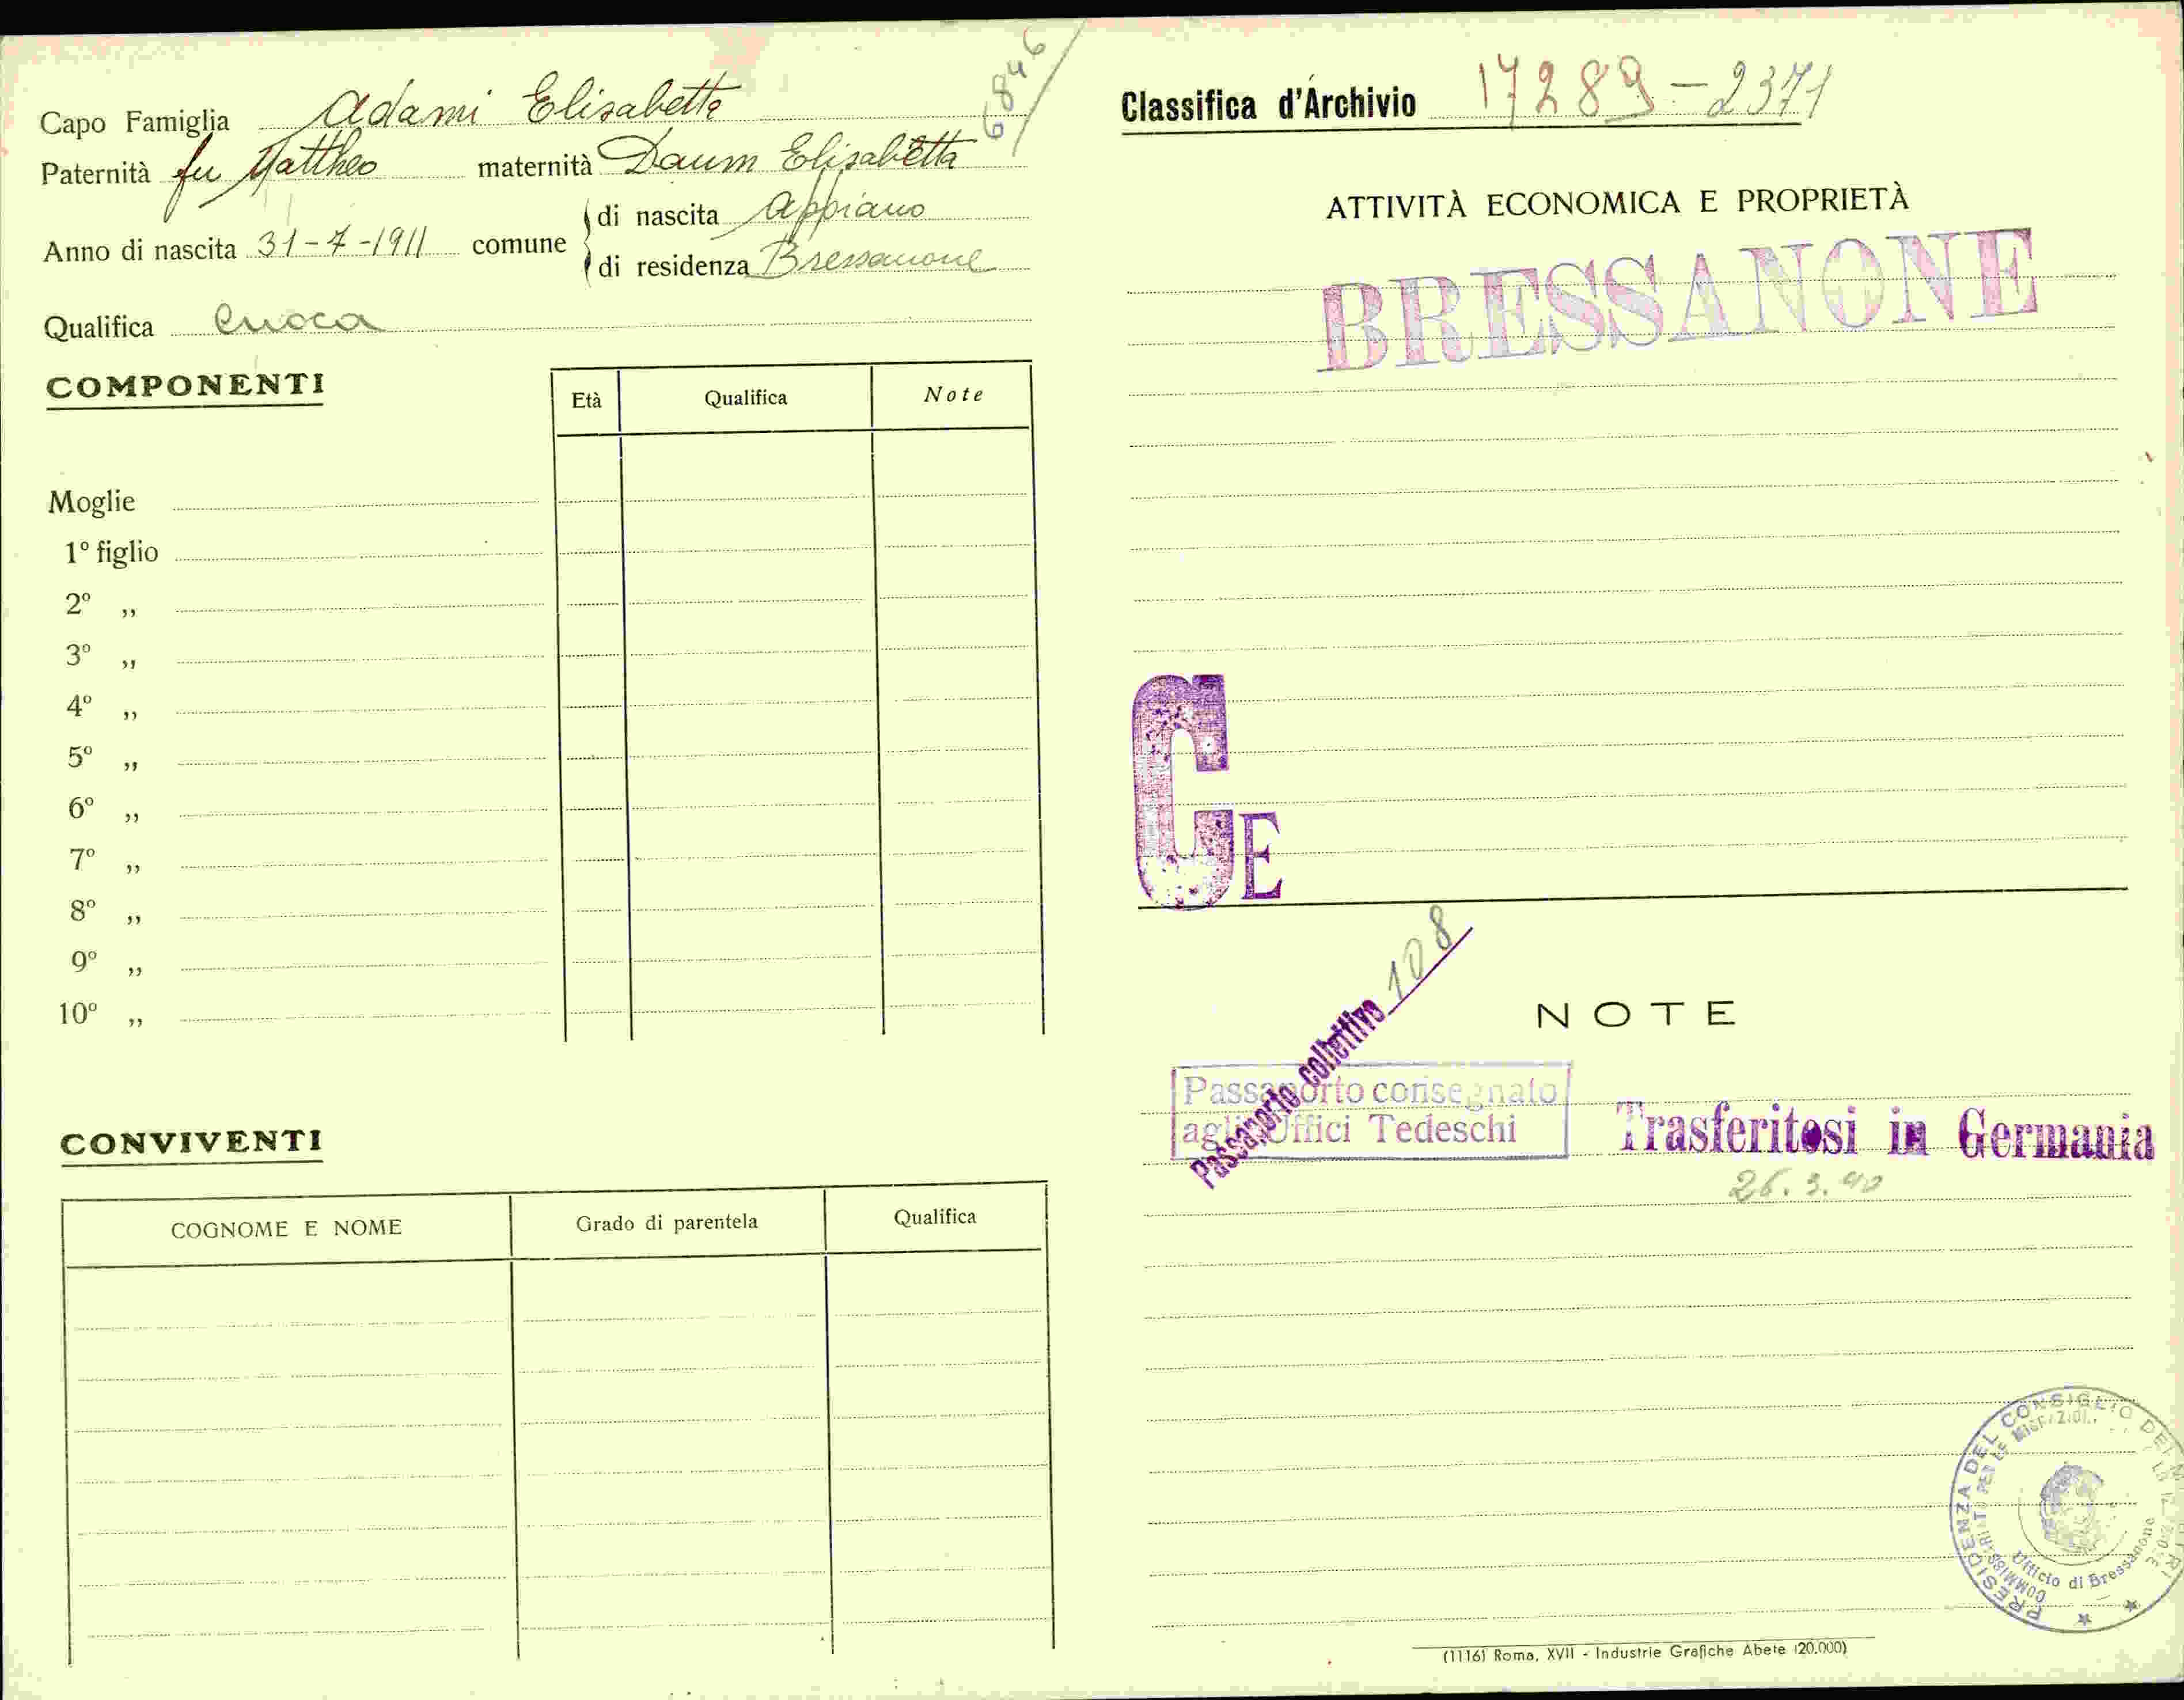 Capo Famiglia Adami Elisabetta
6846
Paternità fu Mattheo maternità Daum Elisabetta
Anno di nascita 31-7-1911 comune di nascita Appiano
di residenza Bressanone
Qualifica cuoca
COMPONENTI
Età Qualifica Note
Moglie
1º figlio
2º ,,
3º ,,
4º ,,
5º ,,
6º ,,
7º ,,
8º ,,
9º ,,
10º ,,
CONVIVENTI
COGNOME E NOME Grado di parentela Qualifica
Classifica d'Archivio 17289-2371
ATTIVITÀ ECONOMICA E PROPRIETÀ
BRESSANONE
CE
NOTE
Passaporto collettivo 108
Passaporto consegnato
agli Uffici Tedeschi
Trasferitosi in Germania
26.3.40
PRESIDENZA DEL CONSIGLIO DEI
Ufficio di Bressanone
(1116) Roma, XVII - Industrie Grafiche Abete (20.000)